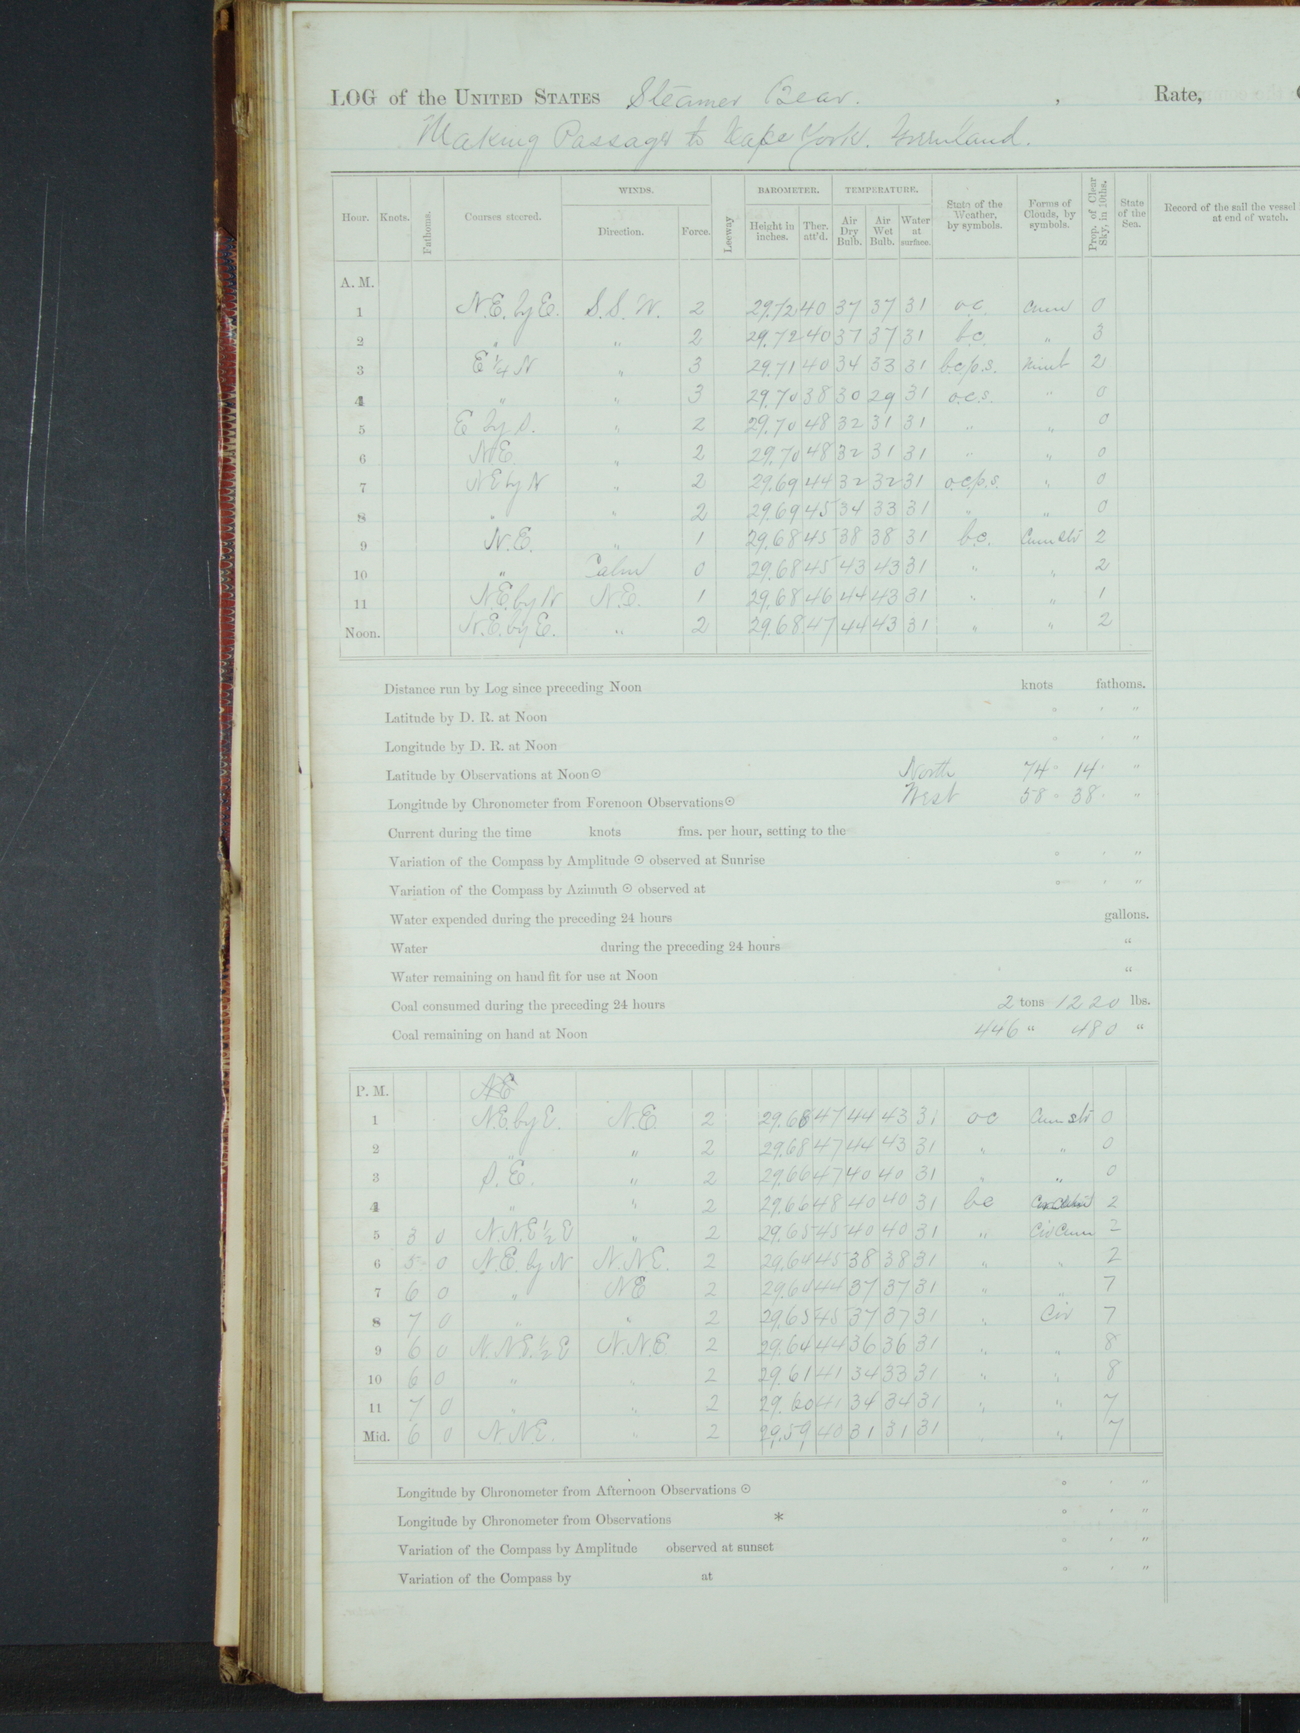 LOG of the UNITED STATES Steamer Bear. , Rate,
Making Passage to Cape York. Greenland.
WINDS. BAROMETER. TEMPERATURE.
Hour. Knots. Fathoms. Courses steered. Direction. Force. Leeway Height in inches. Ther. att'd. Air Dry Bulb. Air Wet Bulb. Water at surface. State of the Weather, by symbols. Forms of Clouds, by symbols. Prop. of Clear Sky, in 10ths. State of the Sea. Record of the sail the vessel at end of watch.
A. M.
1 N.E. by E. S.S.W. 2 29.72 40 37 37 31 o.c. Cum 0
2 " " 2 29.72 40 37 37 31 b.c. " 3
3 E ¼ N " 3 29.71 40 34 33 31 b.c.p.s. Nimb 2
4 " " 3 29.70 38 30 29 31 o.c.s. " 0
5 E by S. " 2 29.70 48 32 31 31 " " 0
6 N.E. " 2 29.70 48 32 31 31 " " 0
7 NE by N " 2 29.69 44 32 32 31 o.c.p.s. " 0
8 " " 2 29.69 45 34 33 31 " " 0
9 N.E. " 1 29.68 45 38 38 31 b.c. Cum str 2
10 " Calm 0 29.68 45 43 43 31 " " 2
11 N.E. by N N.E. 1 29.68 46 44 43 31 " " 1
Noon. N.E. by E. " 2 29.68 47 44 43 31 " " 2
Distance run by Log since preceding Noon knots fathoms.
Latitude by D. R. at Noon ° ' "
Longitude by D. R. at Noon ° ' "
Latitude by Observations at Noon ☉ North 74 ° 14 ' "
Longitude by Chronometer from Forenoon Observations ☉ West 58 ° 38 ' "
Current during the time knots fms. per hour, setting to the
Variation of the Compass by Amplitude ☉ observed at Sunrise ° ' "
Variation of the Compass by Azimuth ☉ observed at ° ' "
Water expended during the preceding 24 hours gallons.
Water during the preceding 24 hours "
Water remaining on hand fit for use at Noon "
Coal consumed during the preceding 24 hours 2 tons 1220 lbs.
Coal remaining on hand at Noon 446 " 480 "
P. M. NE
1 N.E. by E. N.E. 2 29.68 47 44 43 31 oc Cum str 0
2 " " 2 29.68 47 44 43 31 " " 0
3 S.E. " 2 29.66 47 40 40 31 " " 0
4 " " 2 29.66 48 40 40 31 bc 2
5 3 0 N.N.E ½ E " 2 29.65 45 40 40 31 " Cir Cum 2
6 5 0 N.E. by N N.N.E. 2 29.64 45 38 38 31 " " 2
7 6 0 " NE 2 29.64 44 37 37 31 " " 7
8 7 0 " " 2 29.65 45 37 37 31 " Cir 7
9 6 0 N.N.E. ½ E N.N.E. 2 29.64 44 36 36 31 " " 8
10 6 0 " " 2 29.61 41 34 33 31 " " 8
11 7 0 " " 2 29.60 41 34 34 31 " " 7
Mid. 6 0 N.N.E. " 2 29.59 40 31 31 31 " " 7
Longitude by Chronometer from Afternoon Observations ☉ ° ' "
Longitude by Chronometer from Observations * ° ' "
Variation of the Compass by Amplitude observed at sunset ° ' "
Variation of the Compass by at ° ' "